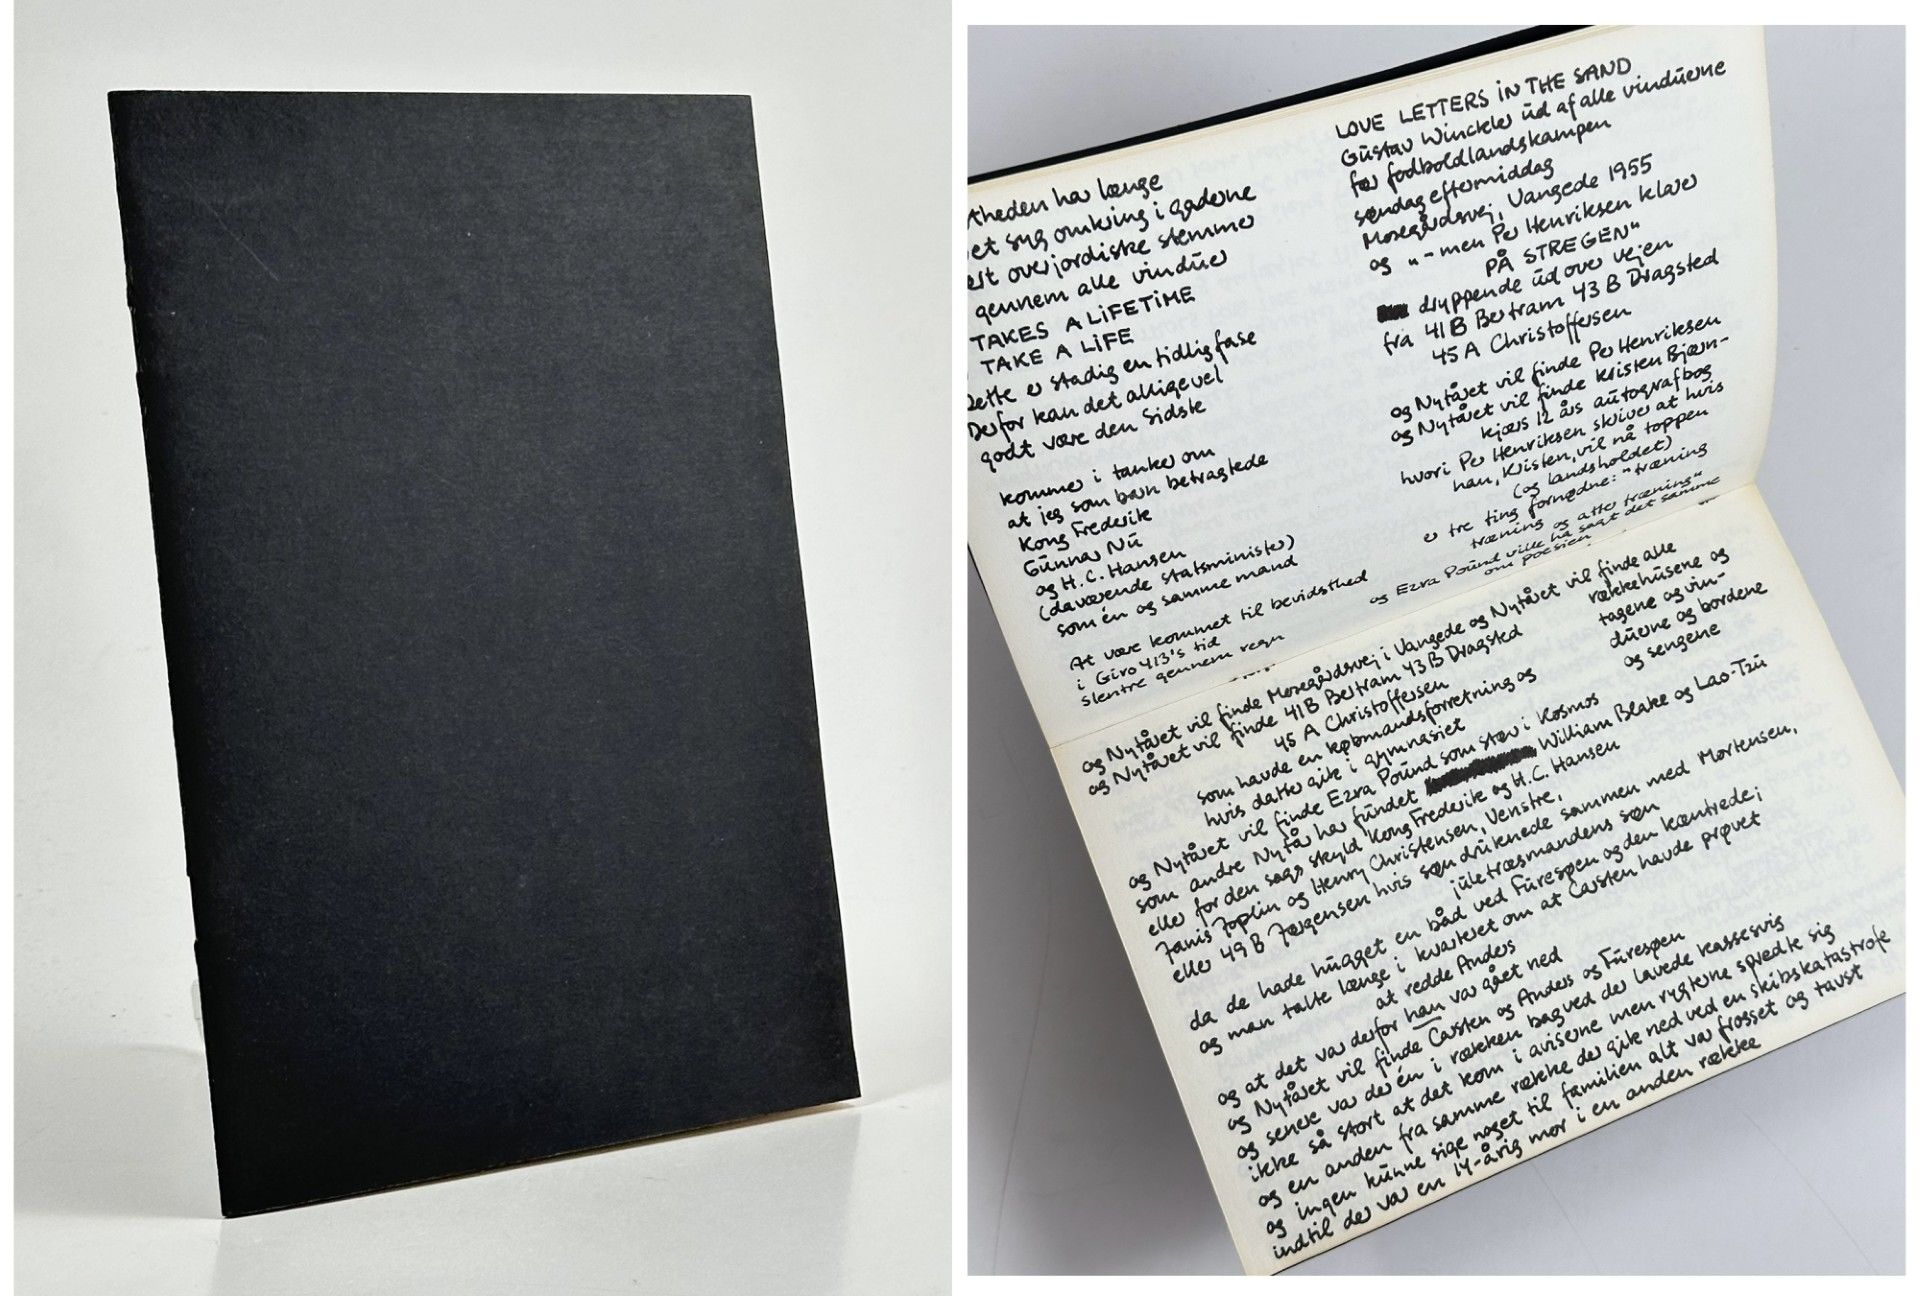 heden har længe
et syg omkring i gaderne
overjordiske stemmer
gennem alle vinduer
TAKES A LiFETiME
TAKE A LiFE
Dette er stadig en tidlig fase
Derfor kan det alligevel
godt være den sidste
kommer i tanker om
at jeg som barn betragtede
Kong Frederik
Gunnar Nu
og H.C. Hansen
(daværende statsminister)
som én og samme mand
At være kommet til bevidsthed
i Giro 413's tid
slentre gennem regn
LOVE LETTERS iN THE SAND
Gustav Winckler ud af alle vinduerne
før fodboldlandskampen
søndag eftermiddag
Mosegårdsvej, Vangede 1955
og "- men Per Henriksen klarer
PÅ STREGEN"
dryppende ud over vejen
fra 41B Bertram 43 B Dragsted
45 A Christoffersen
og Nytåret vil finde Per Henriksen
og Nytåret vil finde Kristen Bjørn-
kjærs 12 års autografbog
hvori Per Henriksen skriver at hvis
han, Kristen, vil nå toppen
(og landsholdet)
er tre ting fornødne: "træning
træning og atter træning"
og Ezra Pound ville ha sagt det samme
om poesien
og Nytåret vil finde Mosegårdsvej i Vangede og Nytåret vil finde alle
rækkehusene og
tagene og vin-
duerne og bordene
og sengene
og Nytåret vil finde 41B Bertram 43B Dragsted
45 A Christoffersen
som havde en købmandsforretning og
hvis datter gik i gymnasiet
og Nytåret vil finde Ezra Pound som støv i Kosmos
som andre Nytår har fundet William Blake og Lao-Tzu
eller for den sags skyld Kong Frederik og H.C. Hansen
Janis Joplin og Henry Christensen, Venstre,
eller 49 B Jørgensen hvis søn druknede sammen med Mortensen,
juletræsmandens søn
da de hade hugget en båd ved Furesøen og den kæntrede;
og man talte længe i kvarteret om at Carsten havde prøvet
at redde Anders
og at det var derfor han var gået ned
og Nytåret vil finde Carsten og Anders og Furesøen
og senere var der én i rækken bagved der lavede kassesvig
ikke så stort at det kom i aviserne men rygterne spredte sig
og en anden fra samme række der gik ned ved en skibskatastrofe
og ingen kunne sige noget til familien alt var frosset og tavst
indtil der var en 14-årig mor i en anden række